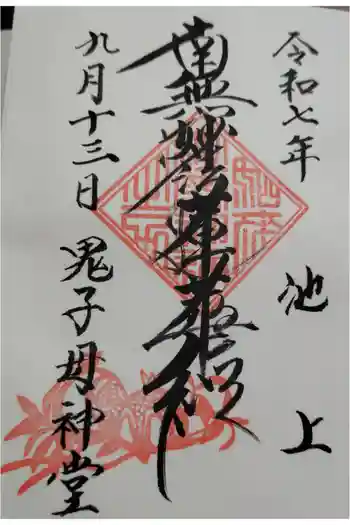 令和七年
池上
南無妙法蓮華経
九月十三日
鬼子母神堂